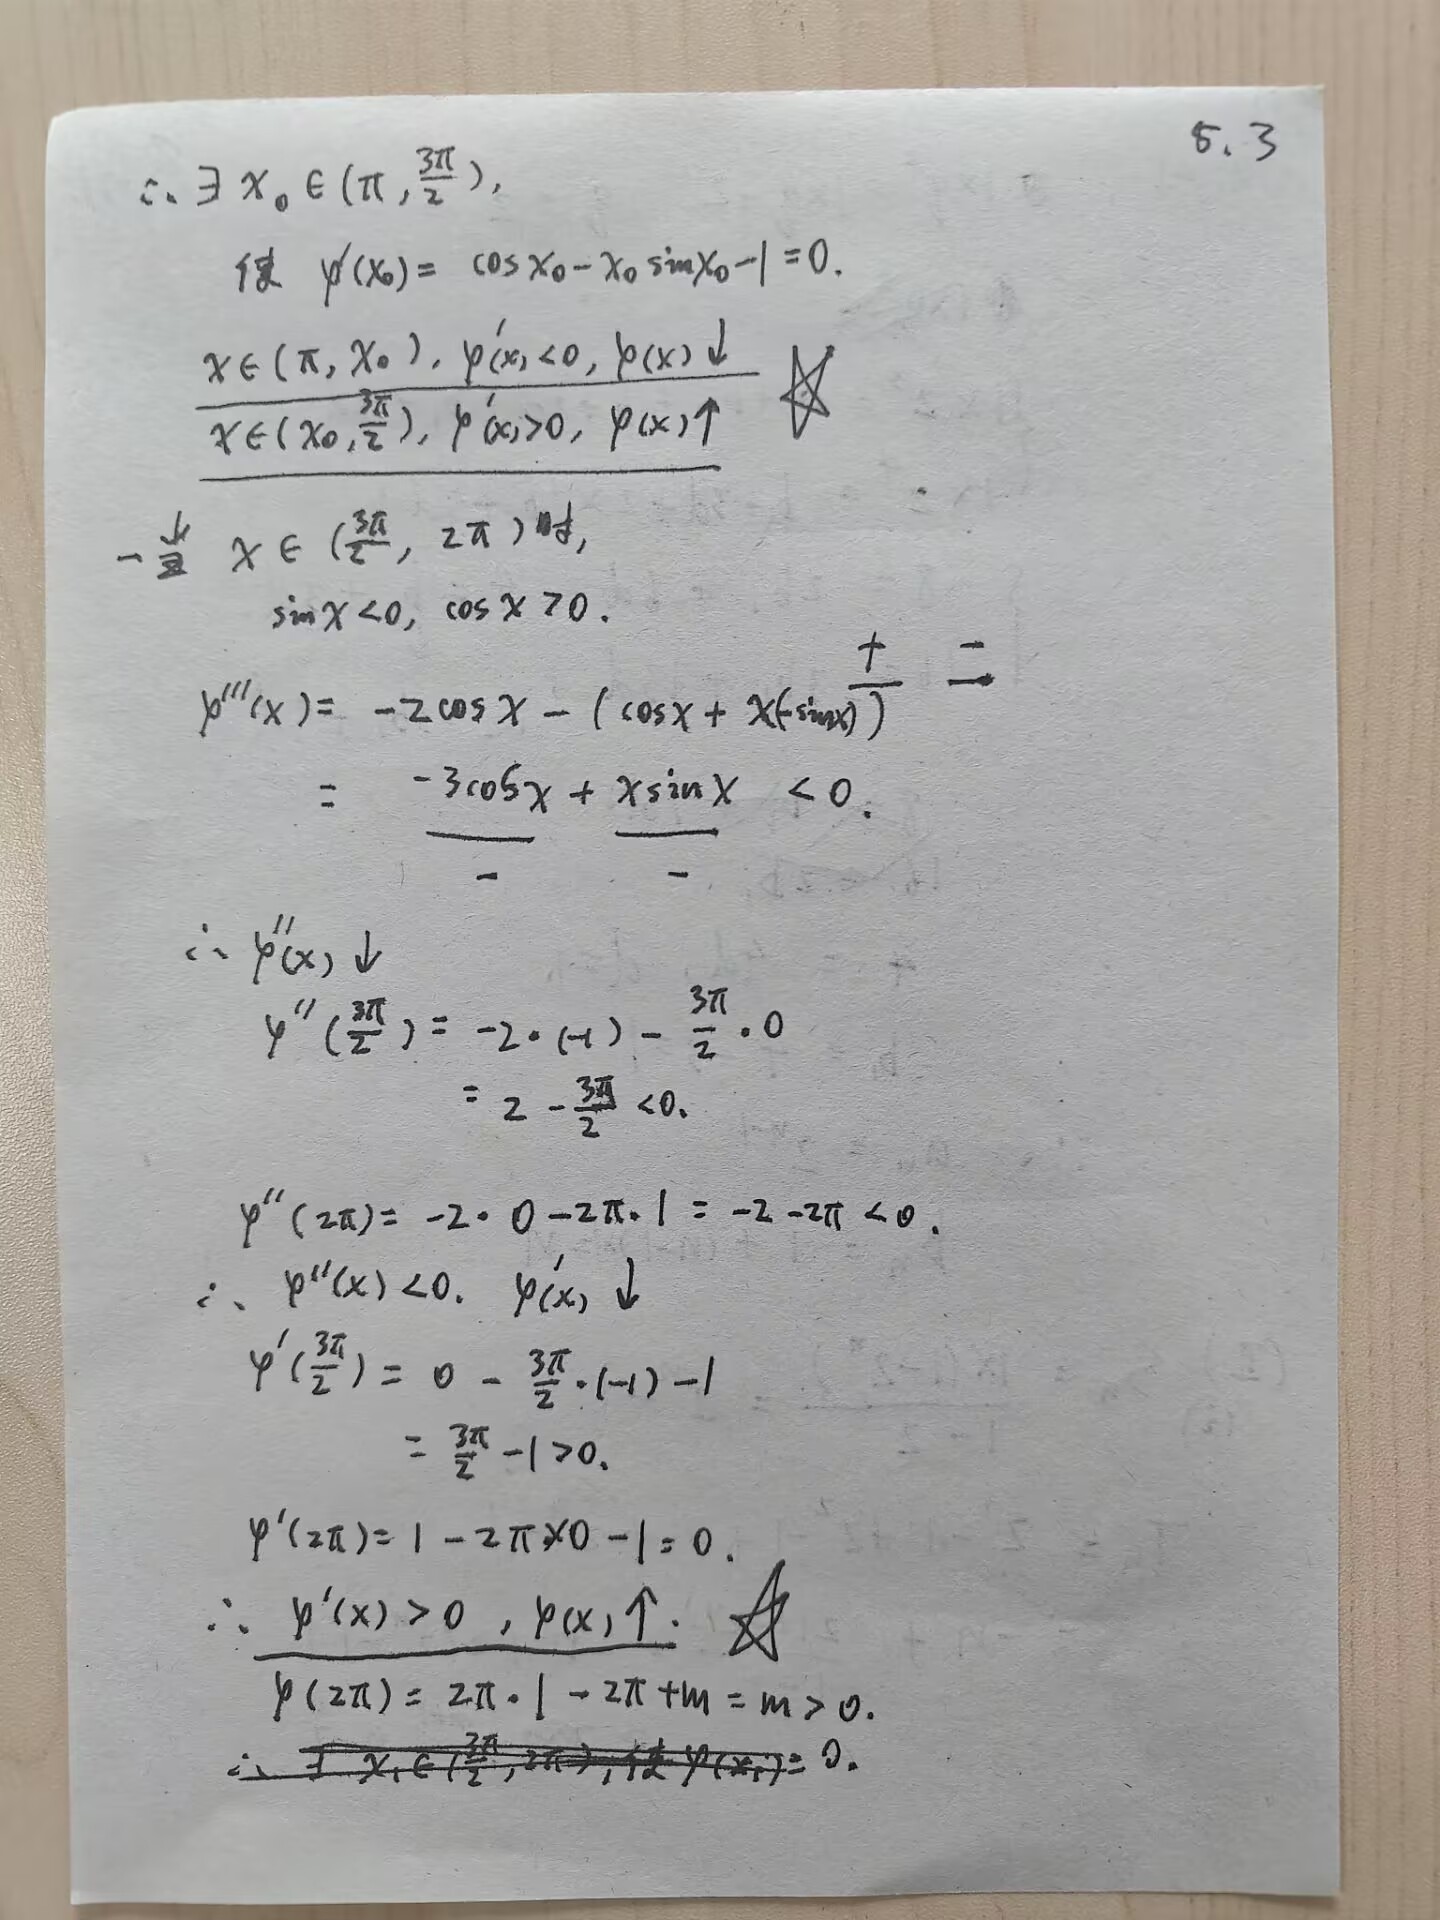 5.3
∴ ∃ x₀ ∈ (π, 3π/2),
使 φ'(x₀) = cos x₀ - x₀ sin x₀ - 1 = 0.
x ∈ (π, x₀), φ'(x) < 0, φ(x) ↓ ☆
x ∈ (x₀, 3π/2), φ'(x) > 0, φ(x) ↑
- 当 x ∈ (3π/2, 2π) 时,
sin x < 0, cos x > 0.
+ -
φ'''(x) = -2cos x - (cos x + x(-sin x))
= -3cos x + x sin x < 0.
- -
∴ φ''(x) ↓
φ''(3π/2) = -2·(-1) - 3π/2·0
= 2 - 3π/2 < 0.
φ''(2π) = -2·0 - 2π·1 = -2 - 2π < 0.
∴ φ''(x) < 0. φ'(x) ↓
φ'(3π/2) = 0 - 3π/2·(-1) - 1
= 3π/2 - 1 > 0.
φ'(2π) = 1 - 2π×0 - 1 = 0.
∴ φ'(x) > 0, φ(x) ↑. ☆
φ(2π) = 2π·1 - 2π + m = m > 0.
∴ ∃ x₁ ∈ (3π/2, 2π), 使 φ(x₁) = 0.